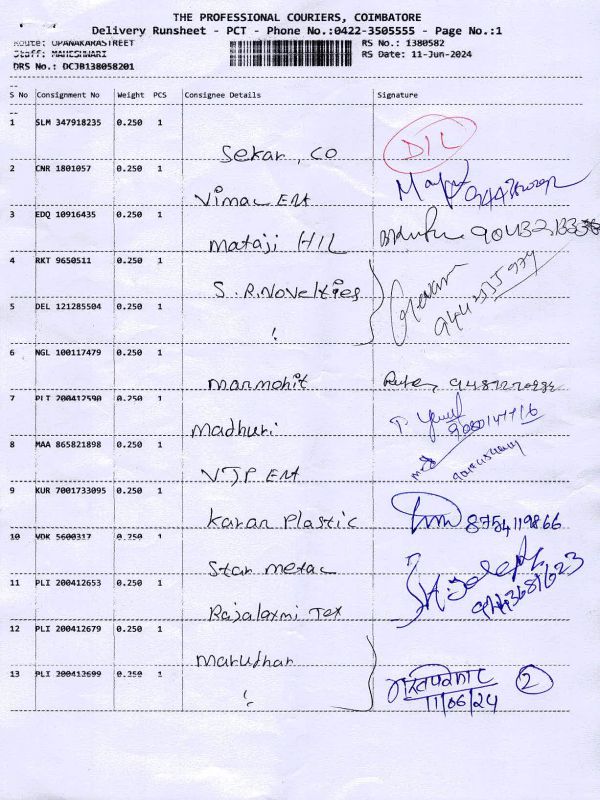 THE PROFESSIONAL COURIERS, COIMBATORE
Delivery Runsheet - PCT - Phone No.:0422-3505555 - Page No.:1
Route: OPANAKARASTREET RS No.: 1380582
Staff: MAHESHWARI RS Date: 11-Jun-2024
DRS No.: DCJB138058201
S No Consignment No Weight PCS Consignee Details Signature
1 SLM 347918235 0.250 1
Sekar, CO DIL
2 CNR 1801057 0.250 1
Vimal Ent
3 EDQ 10916435 0.250 1
Mataji HIL
4 RKT 9650511 0.250 1
S.R.Novelties
5 DEL 121285504 0.250 1
6 NGL 100117479 0.250 1
Marmohit
7 PLI 200412590 0.250 1
Madhuri
8 MAA 865821898 0.250 1
VJP Ent
9 KUR 7001733095 0.250 1
Karan Plastic 8754119866
10 VDK 5600317 0.250 1
Star metal
11 PLI 200412653 0.250 1
Rajalaxmi Tex
12 PLI 200412679 0.250 1
Marudhar
13 PLI 200412699 0.250 1
2
11/06/24